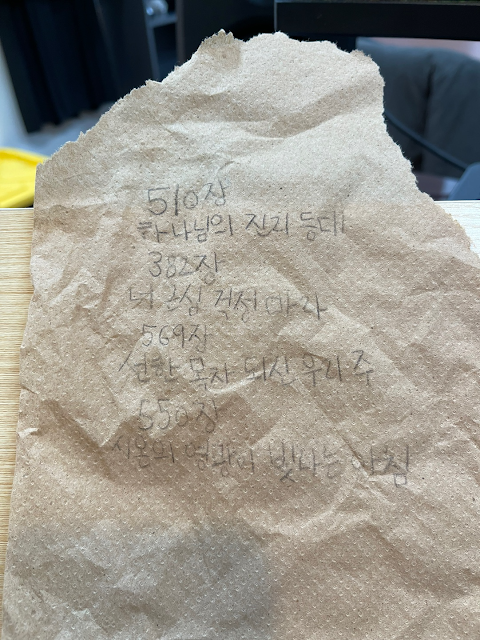 510장
하나님의 진리 등대
382장
너 근심 걱정 마라
569장
선한 목자 되신 우리 주
550장
시온의 영광이 빛나는 아침